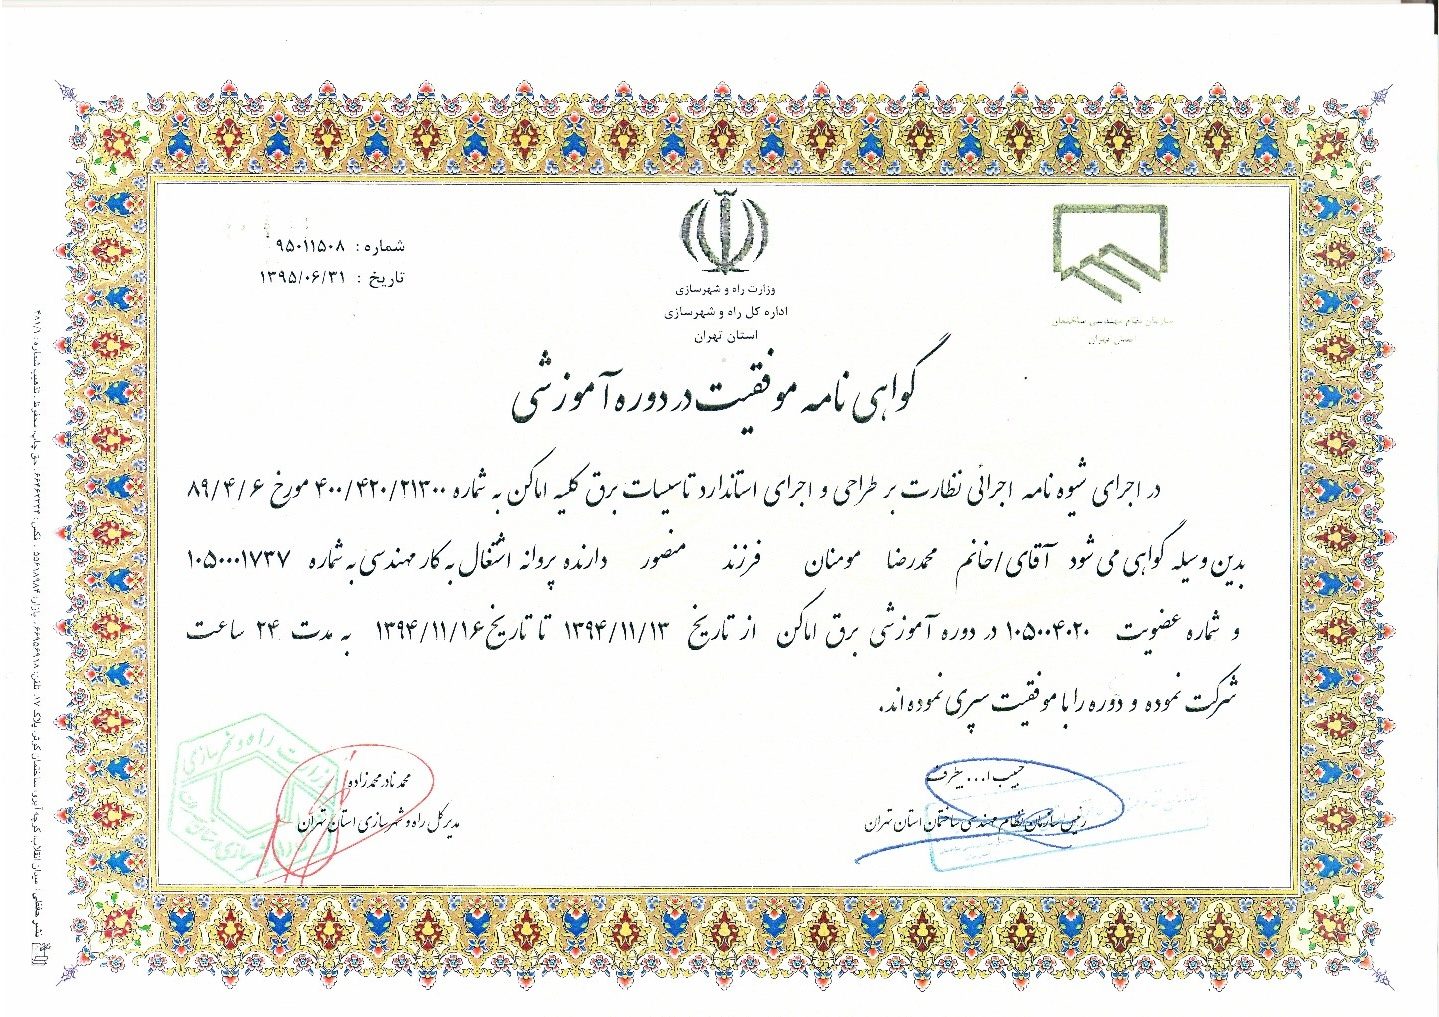 شماره : ۹۵۰۱۱۵۰۸
تاریخ : ۱۳۹۵/۰۶/۳۱
وزارت راه و شهرسازی
اداره کل راه و شهرسازی
استان تهران
سازمان نظام مهندسی ساختمان
استان تهران
گواهی نامه موفقیت در دوره آموزشی
در اجرای شیوه نامه اجرائی نظارت بر طراحی و اجرای استاندارد تاسیسات برق کلیه اماکن به شماره ۴۰۰/۴۲۰/۲۱۳۰۰ مورخ ۸۹/۴/۶
بدین وسیله گواهی می شود آقای/خانم محمدرضا مومنان فرزند منصور دارنده پروانه اشتغال به کار مهندسی به شماره ۱۰۵۰۰۰۱۷۳۷
و شماره عضویت ۱۰۵۰۰۴۰۲۰ در دوره آموزشی برق اماکن از تاریخ ۱۳۹۴/۱۱/۱۳ تا تاریخ ۱۳۹۴/۱۱/۱۶ به مدت ۲۴ ساعت
شرکت نموده و دوره را با موفقیت سپری نموده اند.
حبیب ا... بیطرف
رئیس سازمان نظام مهندسی ساختمان استان تهران
محمد نادر محمدزاده
مدیر کل راه و شهرسازی استان تهران
وزارت راه و شهرسازی
نشر حفظی : میدان انقلاب،